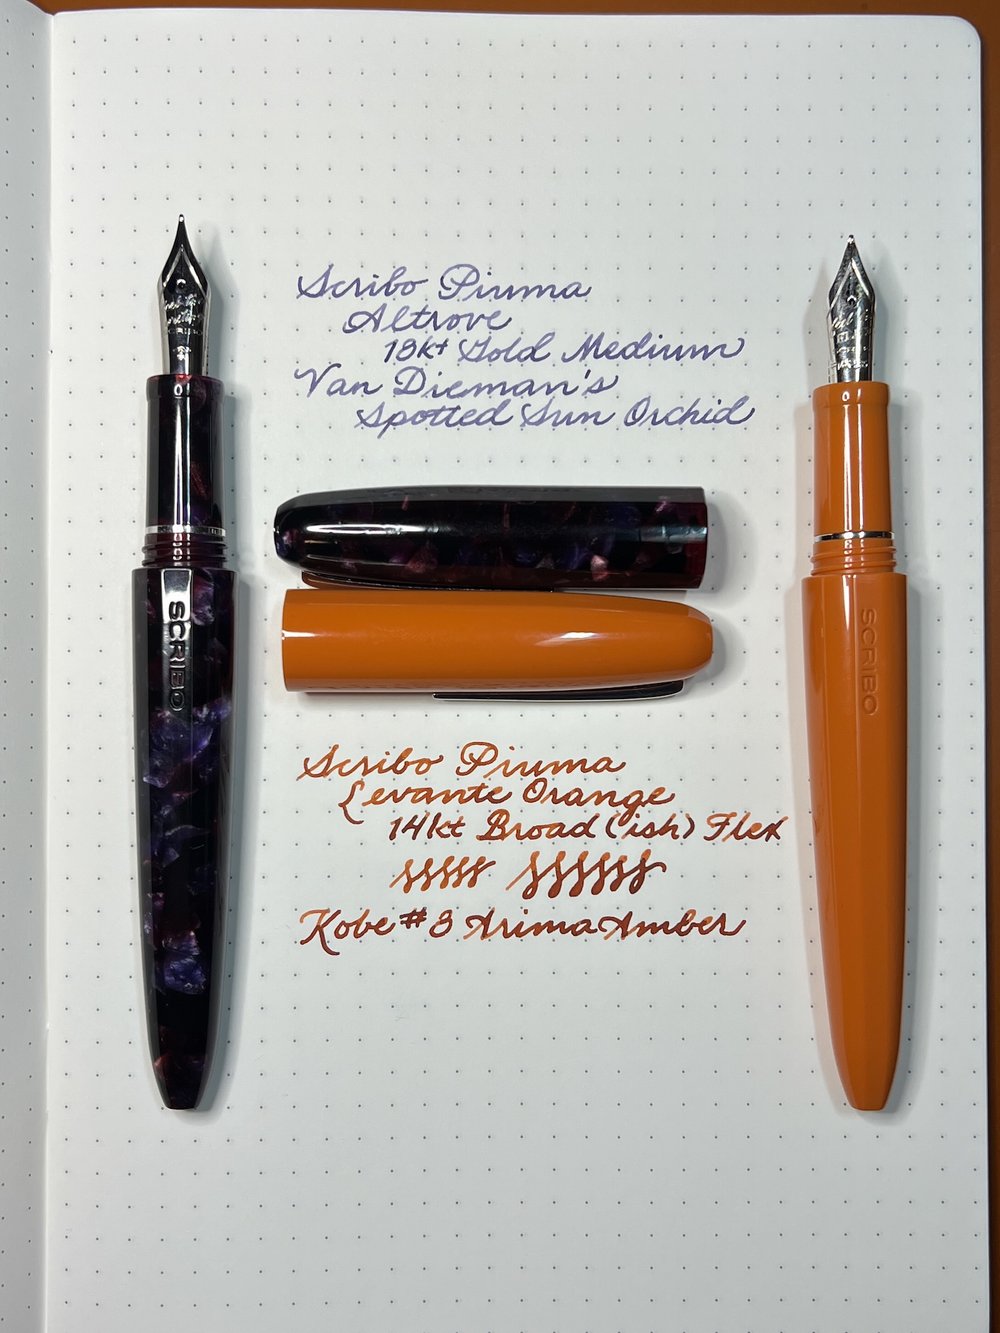 Scribo Piuma
Altrove
18kt Gold Medium
Van Dieman's
Spotted Sun Orchid
SCRIBO
SCRIBO
Scribo Piuma
Levante Orange
14kt Broad(ish) Flex
Kobe #3 Arima Amber